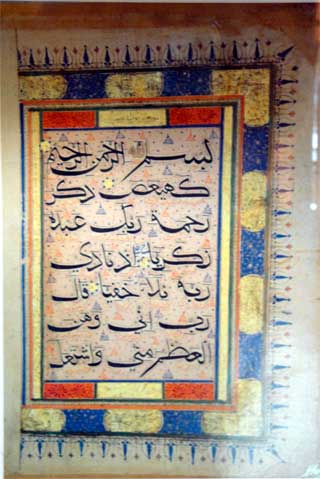 بسم الله الرحمن الرحيم
كهيعص ذكر
رحمة ربك عبده
زكريا إذ نادى
ربه نداء خفيا قال
رب إني وهن
العظم مني واشتعل